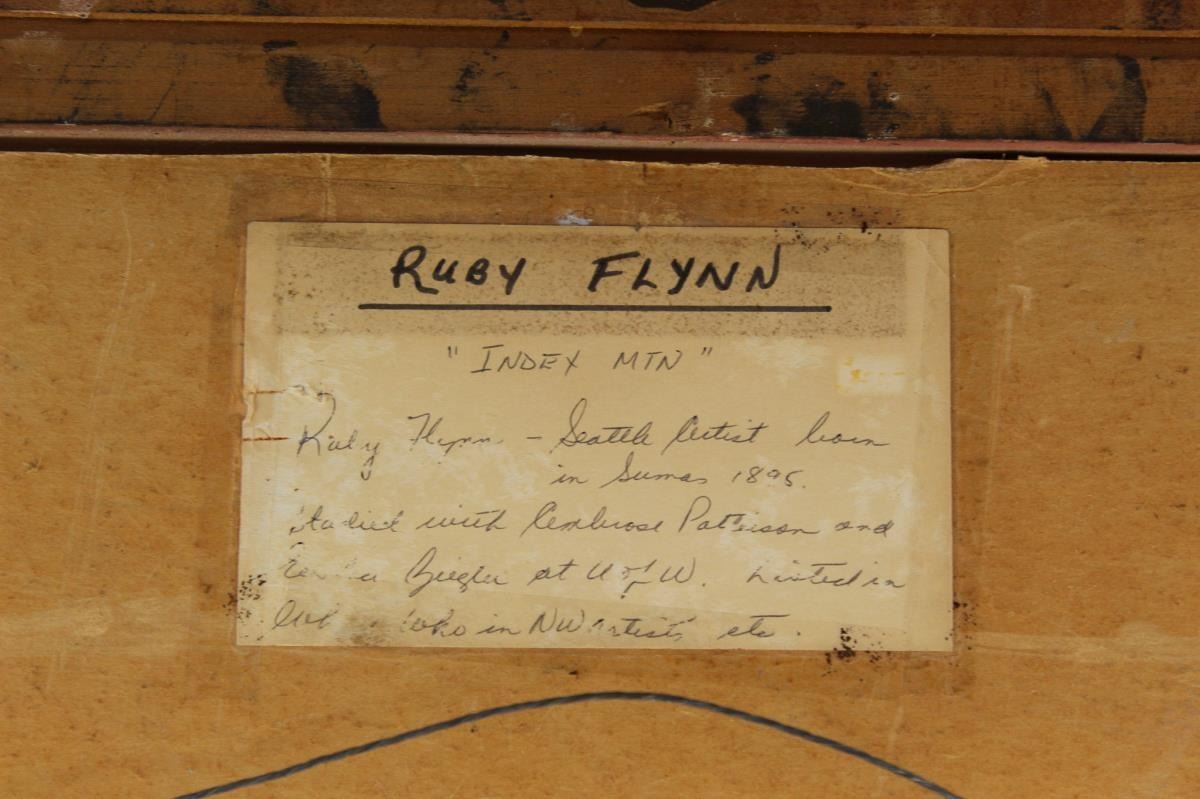 RUBY FLYNN
"INDEX MTN"
Ruby Flynn - Seattle Artist born
in Sumas 1895.
Studied with Ambrose Patterson and
Ziegler at U of W. Listed in
Who in NW artists, etc.